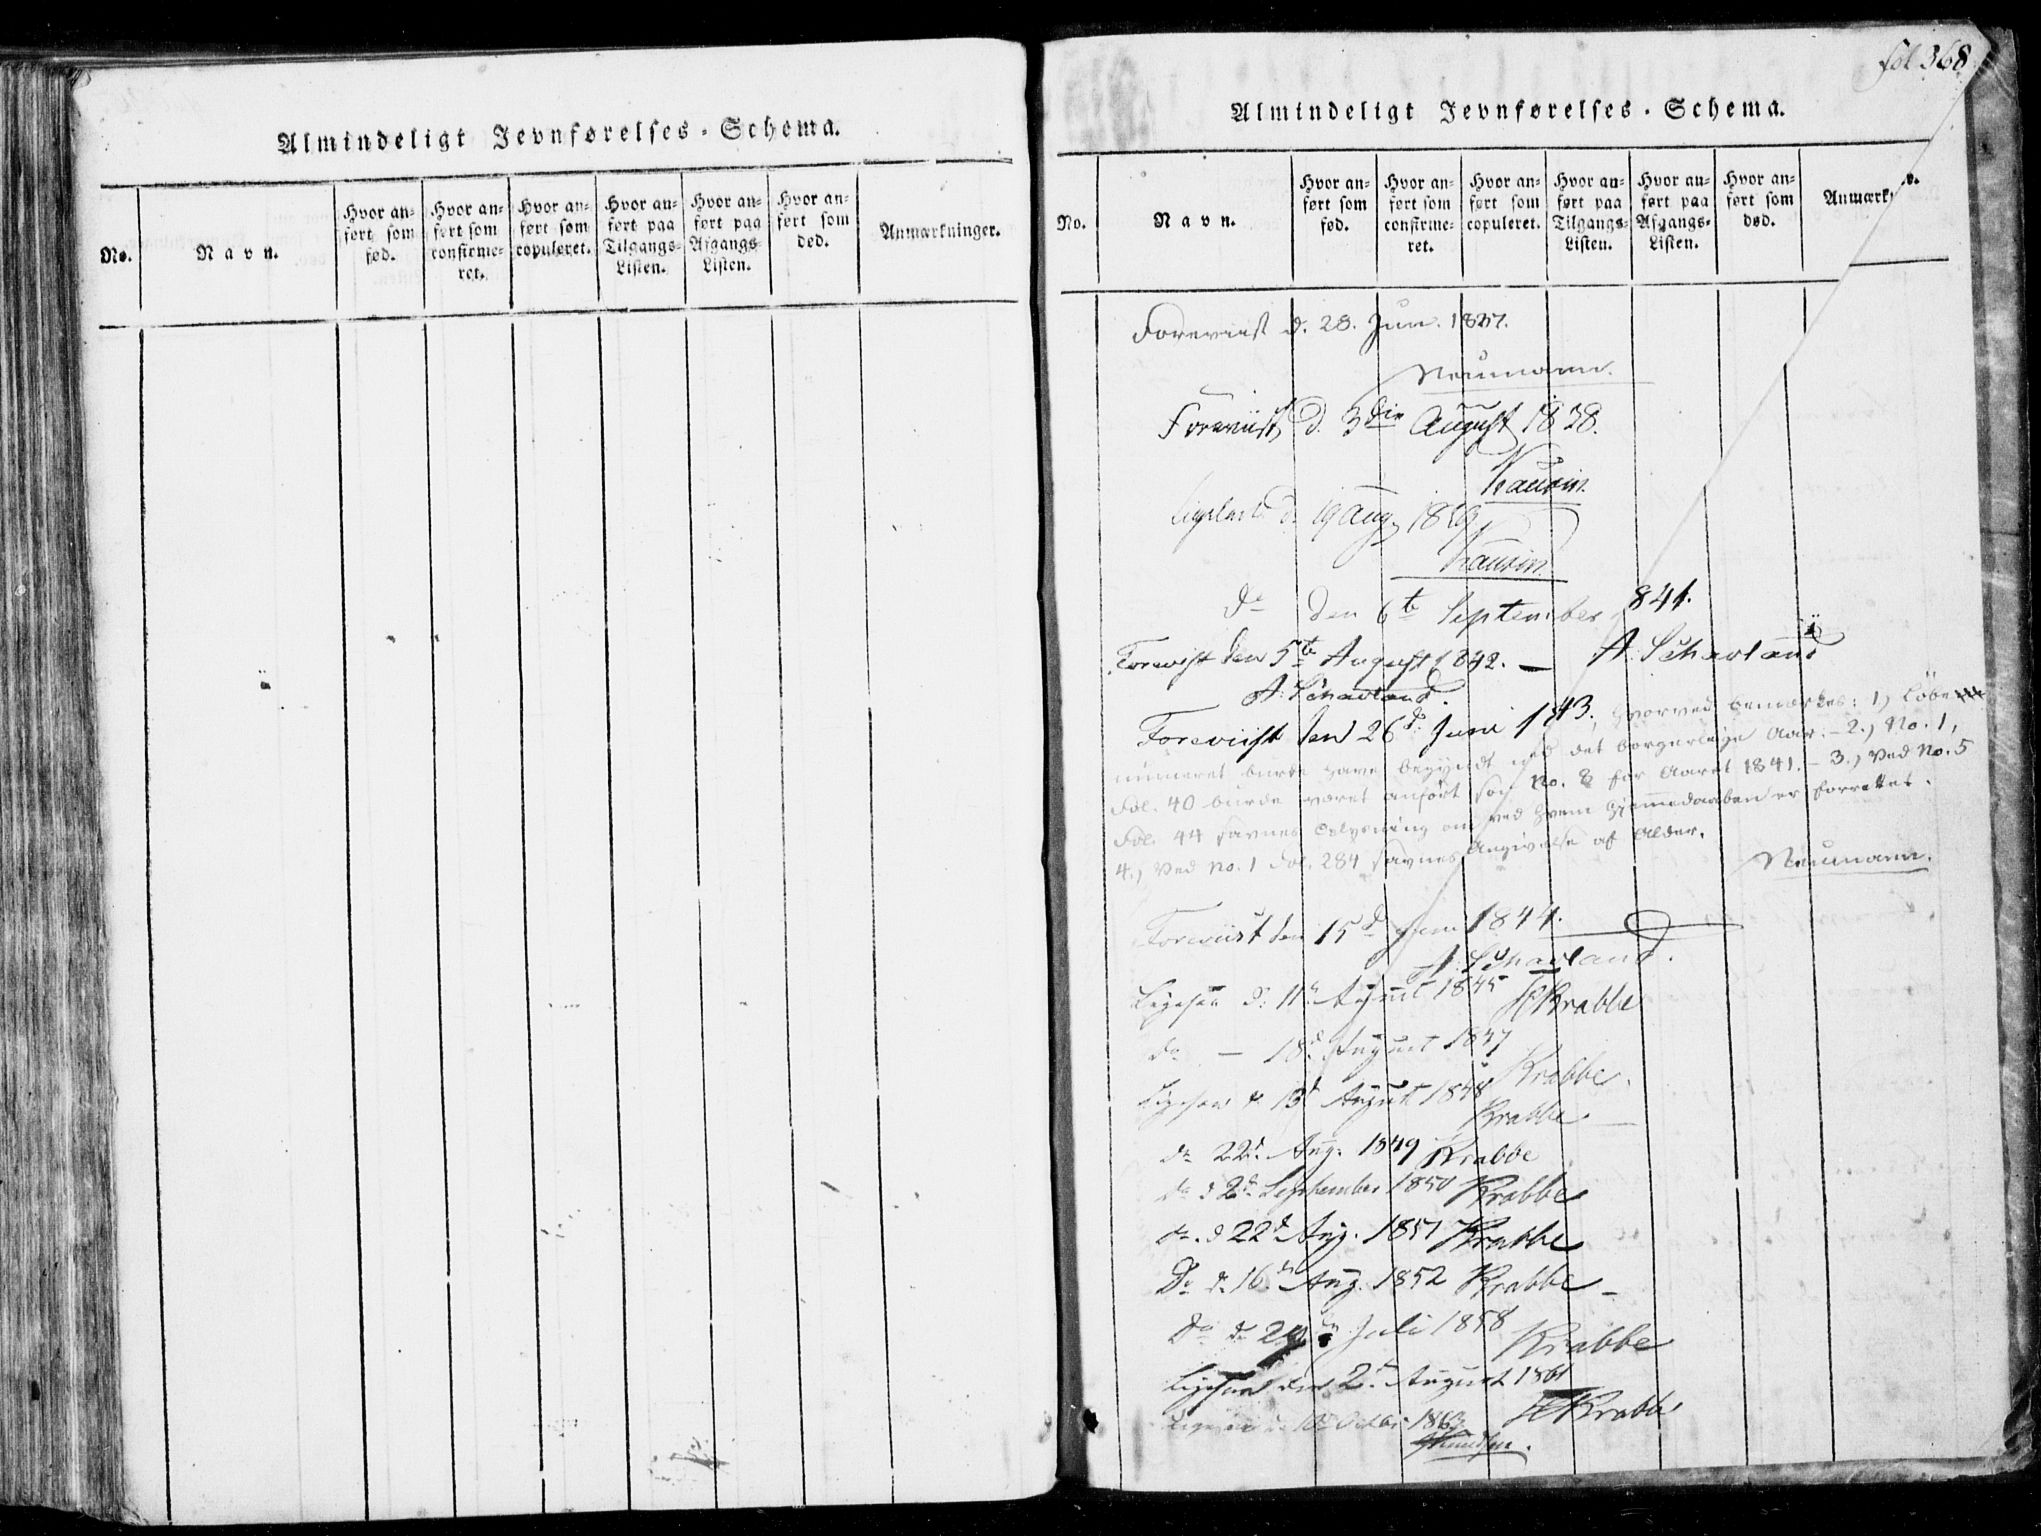 Almindeligt Jevnførelses-Schema.
No.
Navn.
Hvor an-
ført som
fød.
Hvor an-
ført som
confirme-
ret.
Hvor an-
ført som
copuleret.
Hvor an-
ført paa
Tilgangs-
Listen.
Hvor an-
ført paa
Afgangs-
Listen.
Hvor an-
ført som
død.
Anmærkninger.
fol 368
Almindeligt Jevnførelses-Schema.
No.
Navn.
Hvor an-
ført som
fød.
Hvor an-
ført som
confirme-
ret.
Hvor an-
ført som
copuleret.
Hvor an-
ført paa
Tilgangs-
Listen.
Hvor an-
ført paa
Afgangs-
Listen.
Hvor an-
ført som
død.
Foreviist d. 28. Jun. 1837.
Neumann.
Foreviist d. 3die August 1838.
Kaurin.
d. 19 Aug. 1839
Kaurin.
do den 6te September 841.
A. Scharland
Forevist den 5te August 1842. —
A. Scharland.
Foreviist den 26d Juni 1843, hvorved bemærkes: 1) Løbe
numeret burde have begyndt med det borgerlige Aar. - 2.) No. 1,
Fol. 40 burde været anført som No. 8 for Aaret 1841. - 3.) Ved No. 5
Fol. 44 savnes Oplysning om ved hvem Hjemmedaaben er forrettet.
4.) Ved No. 1 Fol. 284 savnes Angivelse af Alder.
Neumann.
Foreviist den 15d Juni 1844.
A. Scharland.
Ligesaa d: 11 August 1845 Krabbe
do — 18d August 1847
Krabbe.
Ligesaa d. 13d August 1848
Krabbe
do 22d Aug. 1849 Krabbe
do d 2d September 1850 Krabbe
do. d 22d Aug. 1851 Krabbe
Do d. 16 Aug. 1852 Krabbe
Do d. Juli 1858
Krabbe
Ligesaa den 2 August 1861
Krabbe
Ligesaa Octbr 1863
Knudsen.